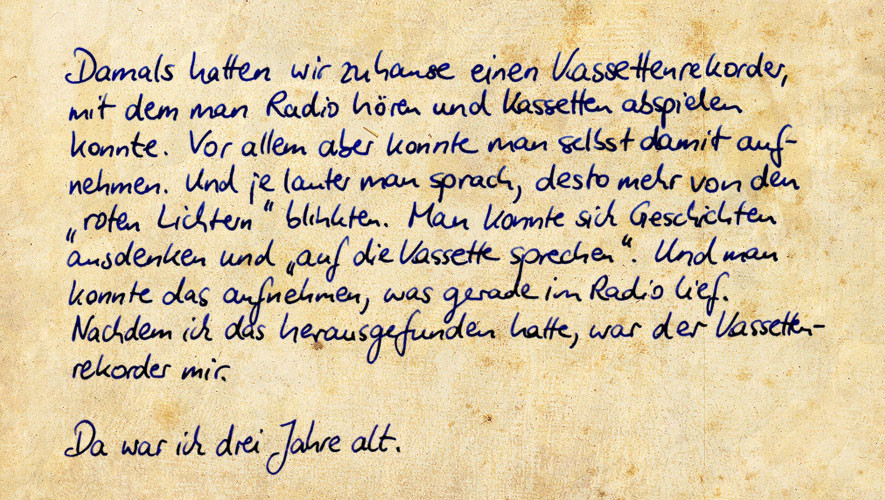 Damals hatten wir zuhause einen Kassettenrekorder,
mit dem man Radio hören und Kassetten abspielen
konnte. Vor allem aber konnte man selbst damit auf-
nehmen. Und je lauter man sprach, desto mehr von den
„roten Lichtern“ blinkten. Man konnte sich Geschichten
ausdenken und „auf die Kassette sprechen“. Und man
konnte das aufnehmen, was gerade im Radio lief.
Nachdem ich das herausgefunden hatte, war der Kassetten-
rekorder mir.
Da war ich drei Jahre alt.